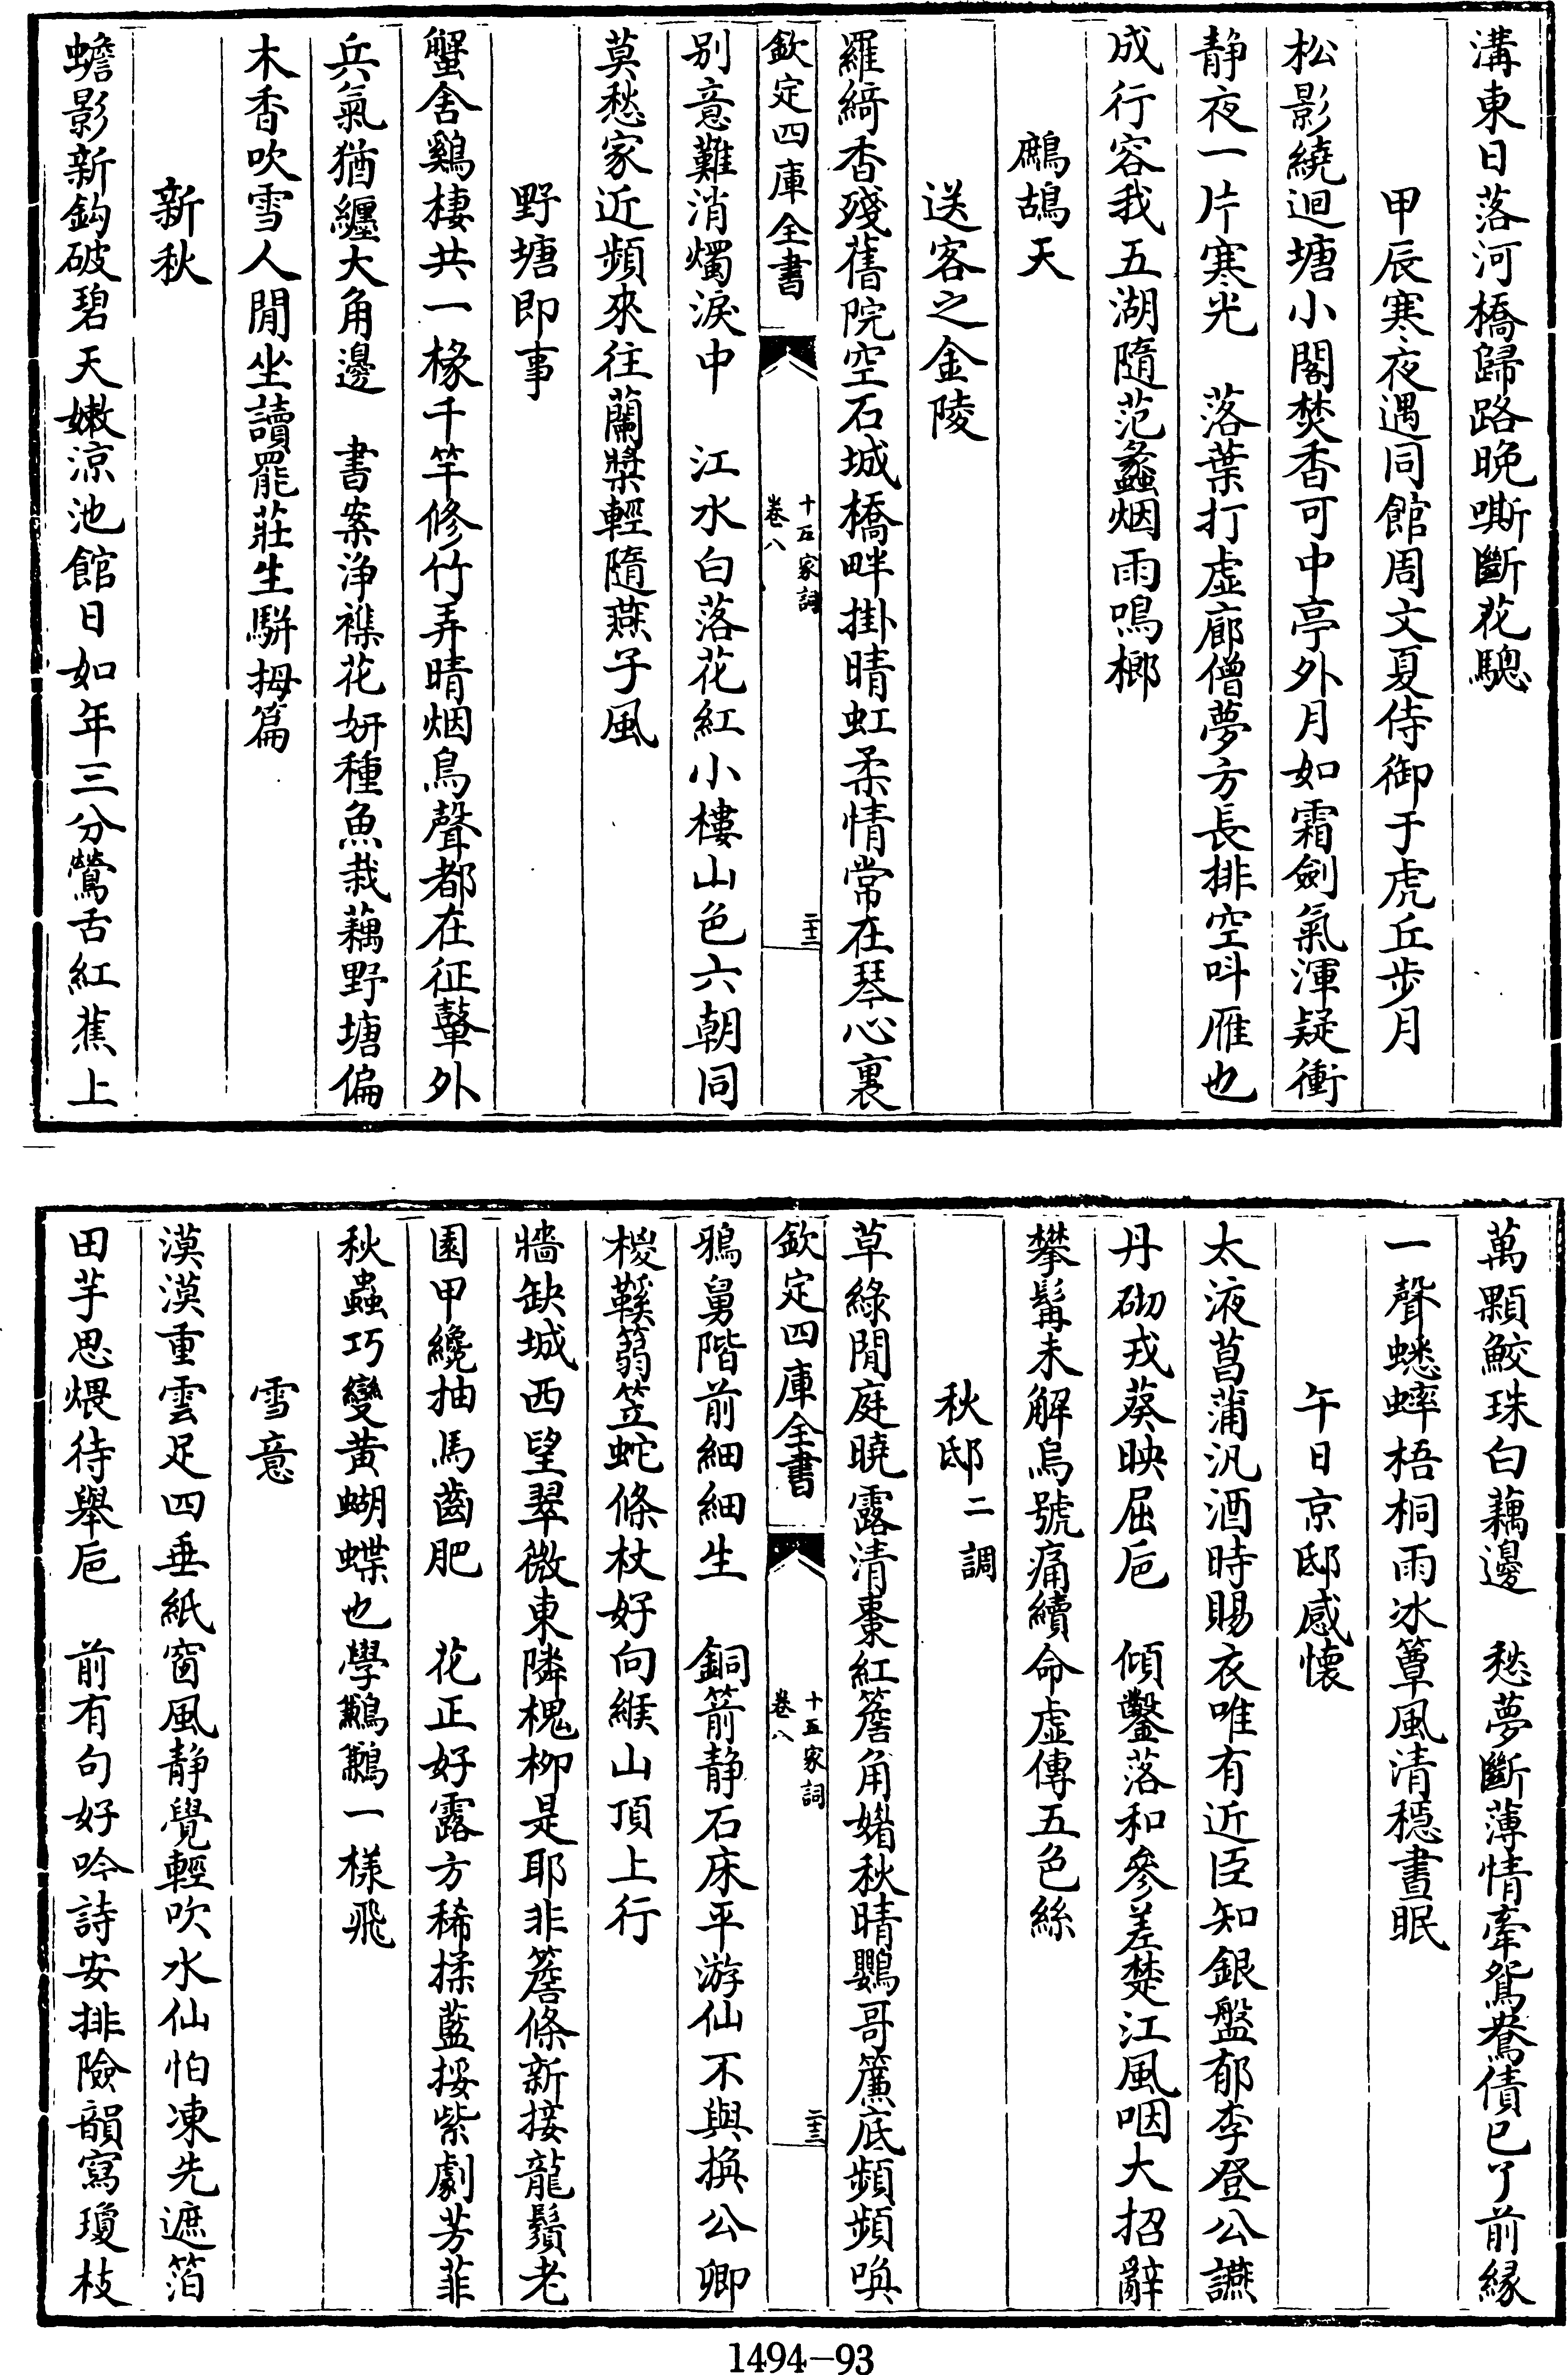 溝東日落河橋歸路晚嘶斷花驄
甲辰寒夜遇同館周文夏侍御于虎丘步月
松影繞迴塘小閣焚香可中亭外月如霜劍氣渾疑衝
静夜一片寒光　落葉打虚廊僧夢方長排空叫雁也
成行容我五湖隨范蠡烟雨鳴榔
鷓鴣天
送客之金陵
羅綺香殘舊院空石城橋畔掛晴虹柔情常在琴心裏
欽定四庫全書
十五家詞
卷八
二十三
别意難消燭淚中　江水白落花紅小樓山色六朝同
莫愁家近頻來往蘭槳輕隨燕子風
野塘即事
蟹舍鷄棲共一椽千竿修竹弄晴烟鳥聲都在征鼙外
兵氣猶纏大角邊　書案淨襍花妍種魚栽藕野塘偏
木香吹雪人閒坐讀罷莊生駢拇篇
新秋
蟾影新鈎破碧天嫩涼池館日如年三分鶯舌紅蕉上
萬顆鮫珠白藕邊　愁夢斷薄情牽鴛鴦債已了前縁
一聲蟋蟀梧桐雨冰簟風清穩晝眠
午日京邸感懐
太液菖蒲汎酒時賜衣唯有近臣知銀盤郁李登公讌
丹砌戎葵映屈巵　傾鑿落和參差楚江風咽大招辭
攀髯未解烏號痛續命虚傳五色絲
秋邸二調
草綠閒庭曉露清棗紅簷角媚秋晴鸚哥簾底頻頻喚
欽定四庫全書
十五家詞
卷八
二十三
鴉舅階前細細生　銅箭静石床平游仙不與換公卿
椶鞵箬笠蛇條杖好向緱山頂上行
牆缺城西望翠微東隣槐柳是耶非簷條新接龍鬚老
園甲纔抽馬齒肥　花正好露方稀揉藍挼紫劇芳菲
秋蟲巧變黄蝴蝶也學鶼鶼一様飛
雪意
漠漠重雲足四垂紙窗風静覺輕吹水仙怕凍先遮箔
田芋思煨待舉巵　前有句好吟詩安排險韻寫瓊枝
1494-93